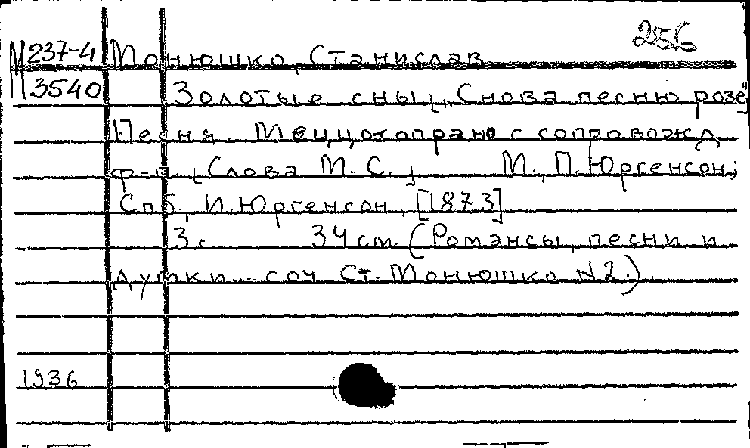 256
М 237-4 Монюшко, Станислав
П 3540 Золотые сны. Снова песню розе
Песня. Меццосопрано с сопровожд.
ф-п. [Слова М. С.] М., П. Юргенсон;
Спб, И. Юргенсон, [1873]
3 с. 34 см. (Романсы, песни и
думки соч. Ст. Монюшко N2.)
1936